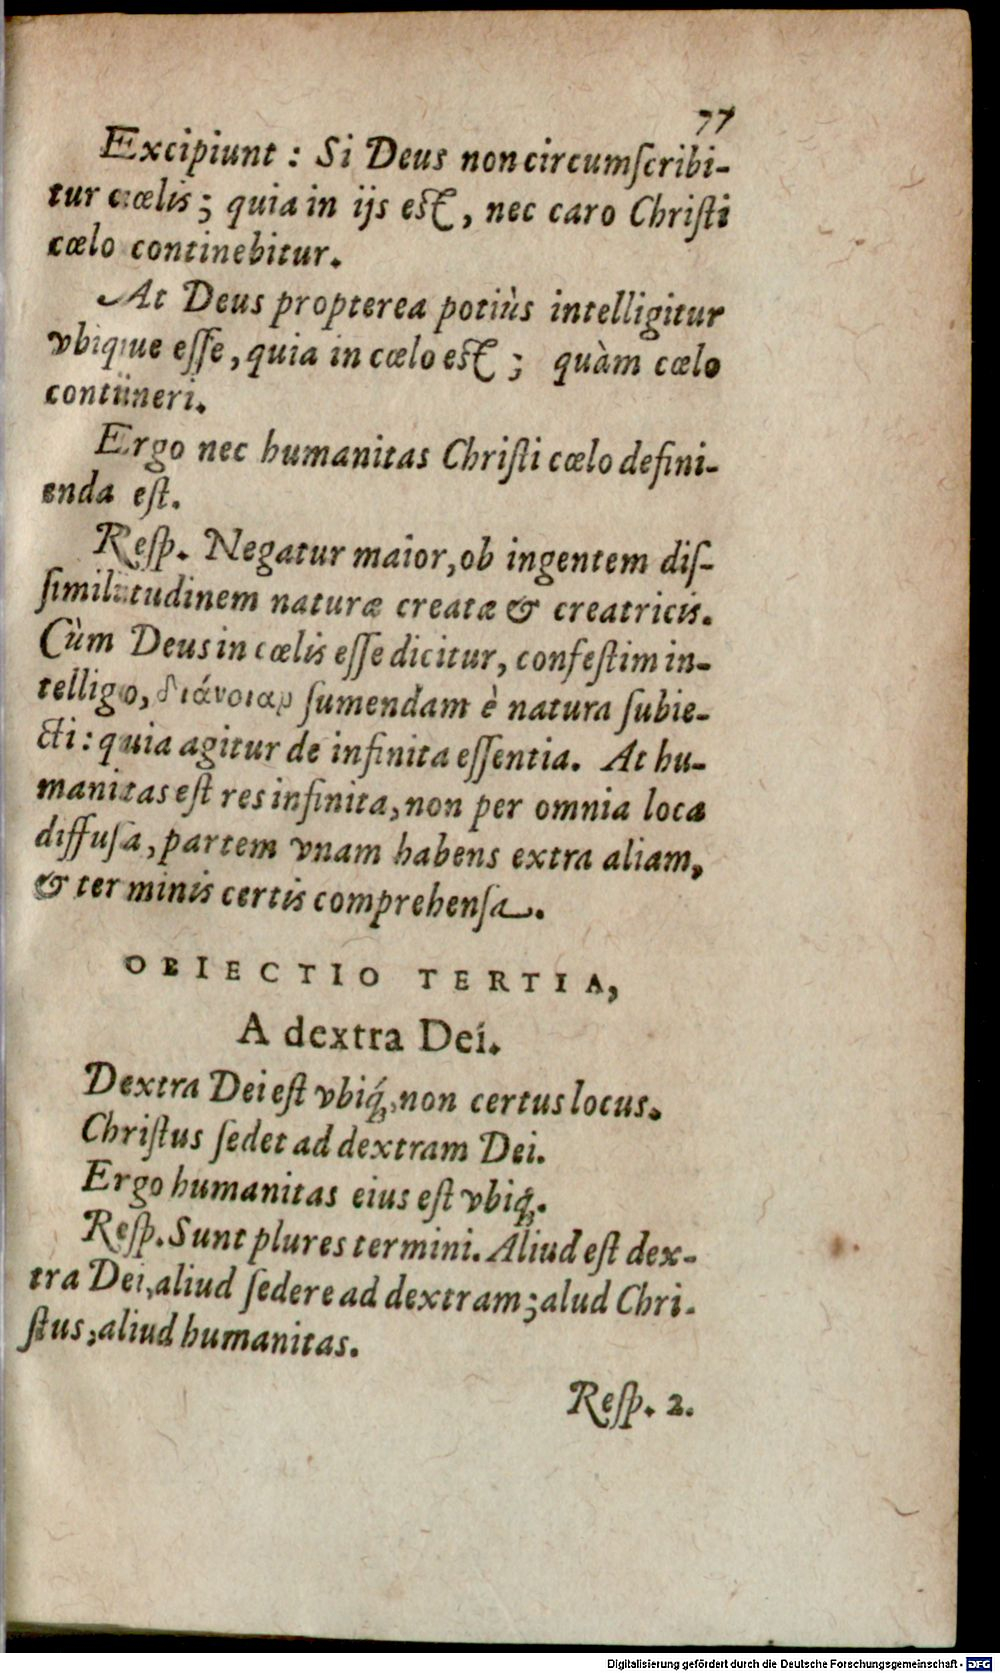 77
Excipiunt : Si Deus non circumſcribi-
tur cœlis ; quia in ijs eſt, nec caro Chriſti
cœlo continebitur.
At Deus propterea potiùs intelligitur
vbique eſſe, quia in cœlo eſt ; quàm cœlo
contineri.
Ergo nec humanitas Chriſti cœlo defini-
enda eſt.
Reſp. Negatur maior, ob ingentem diſ-
ſimilitudinem naturæ creatæ & creatricis.
Cùm Deus in cœlis eſſe dicitur, confeſtim in-
telligo, διάνοιαν ſumendam è natura ſubie-
cti : quia agitur de infinita eſſentia. At hu-
manitas eſt res infinita, non per omnia loca
diffuſa, partem vnam habens extra aliam,
& terminis certis comprehenſa.
OBIECTIO TERTIA,
A dextra Dei.
Dextra Dei eſt vbiq́;, non certus locus.
Chriſtus ſedet ad dextram Dei.
Ergo humanitas eius eſt vbiq́;.
Reſp. Sunt plures termini. Aliud eſt dex-
tra Dei, aliud ſedere ad dextram; alud Chri-
ſtus, aliud humanitas.
Reſp. 2.
Digitalisierung gefördert durch die Deutsche Forschungsgemeinschaft - DFG